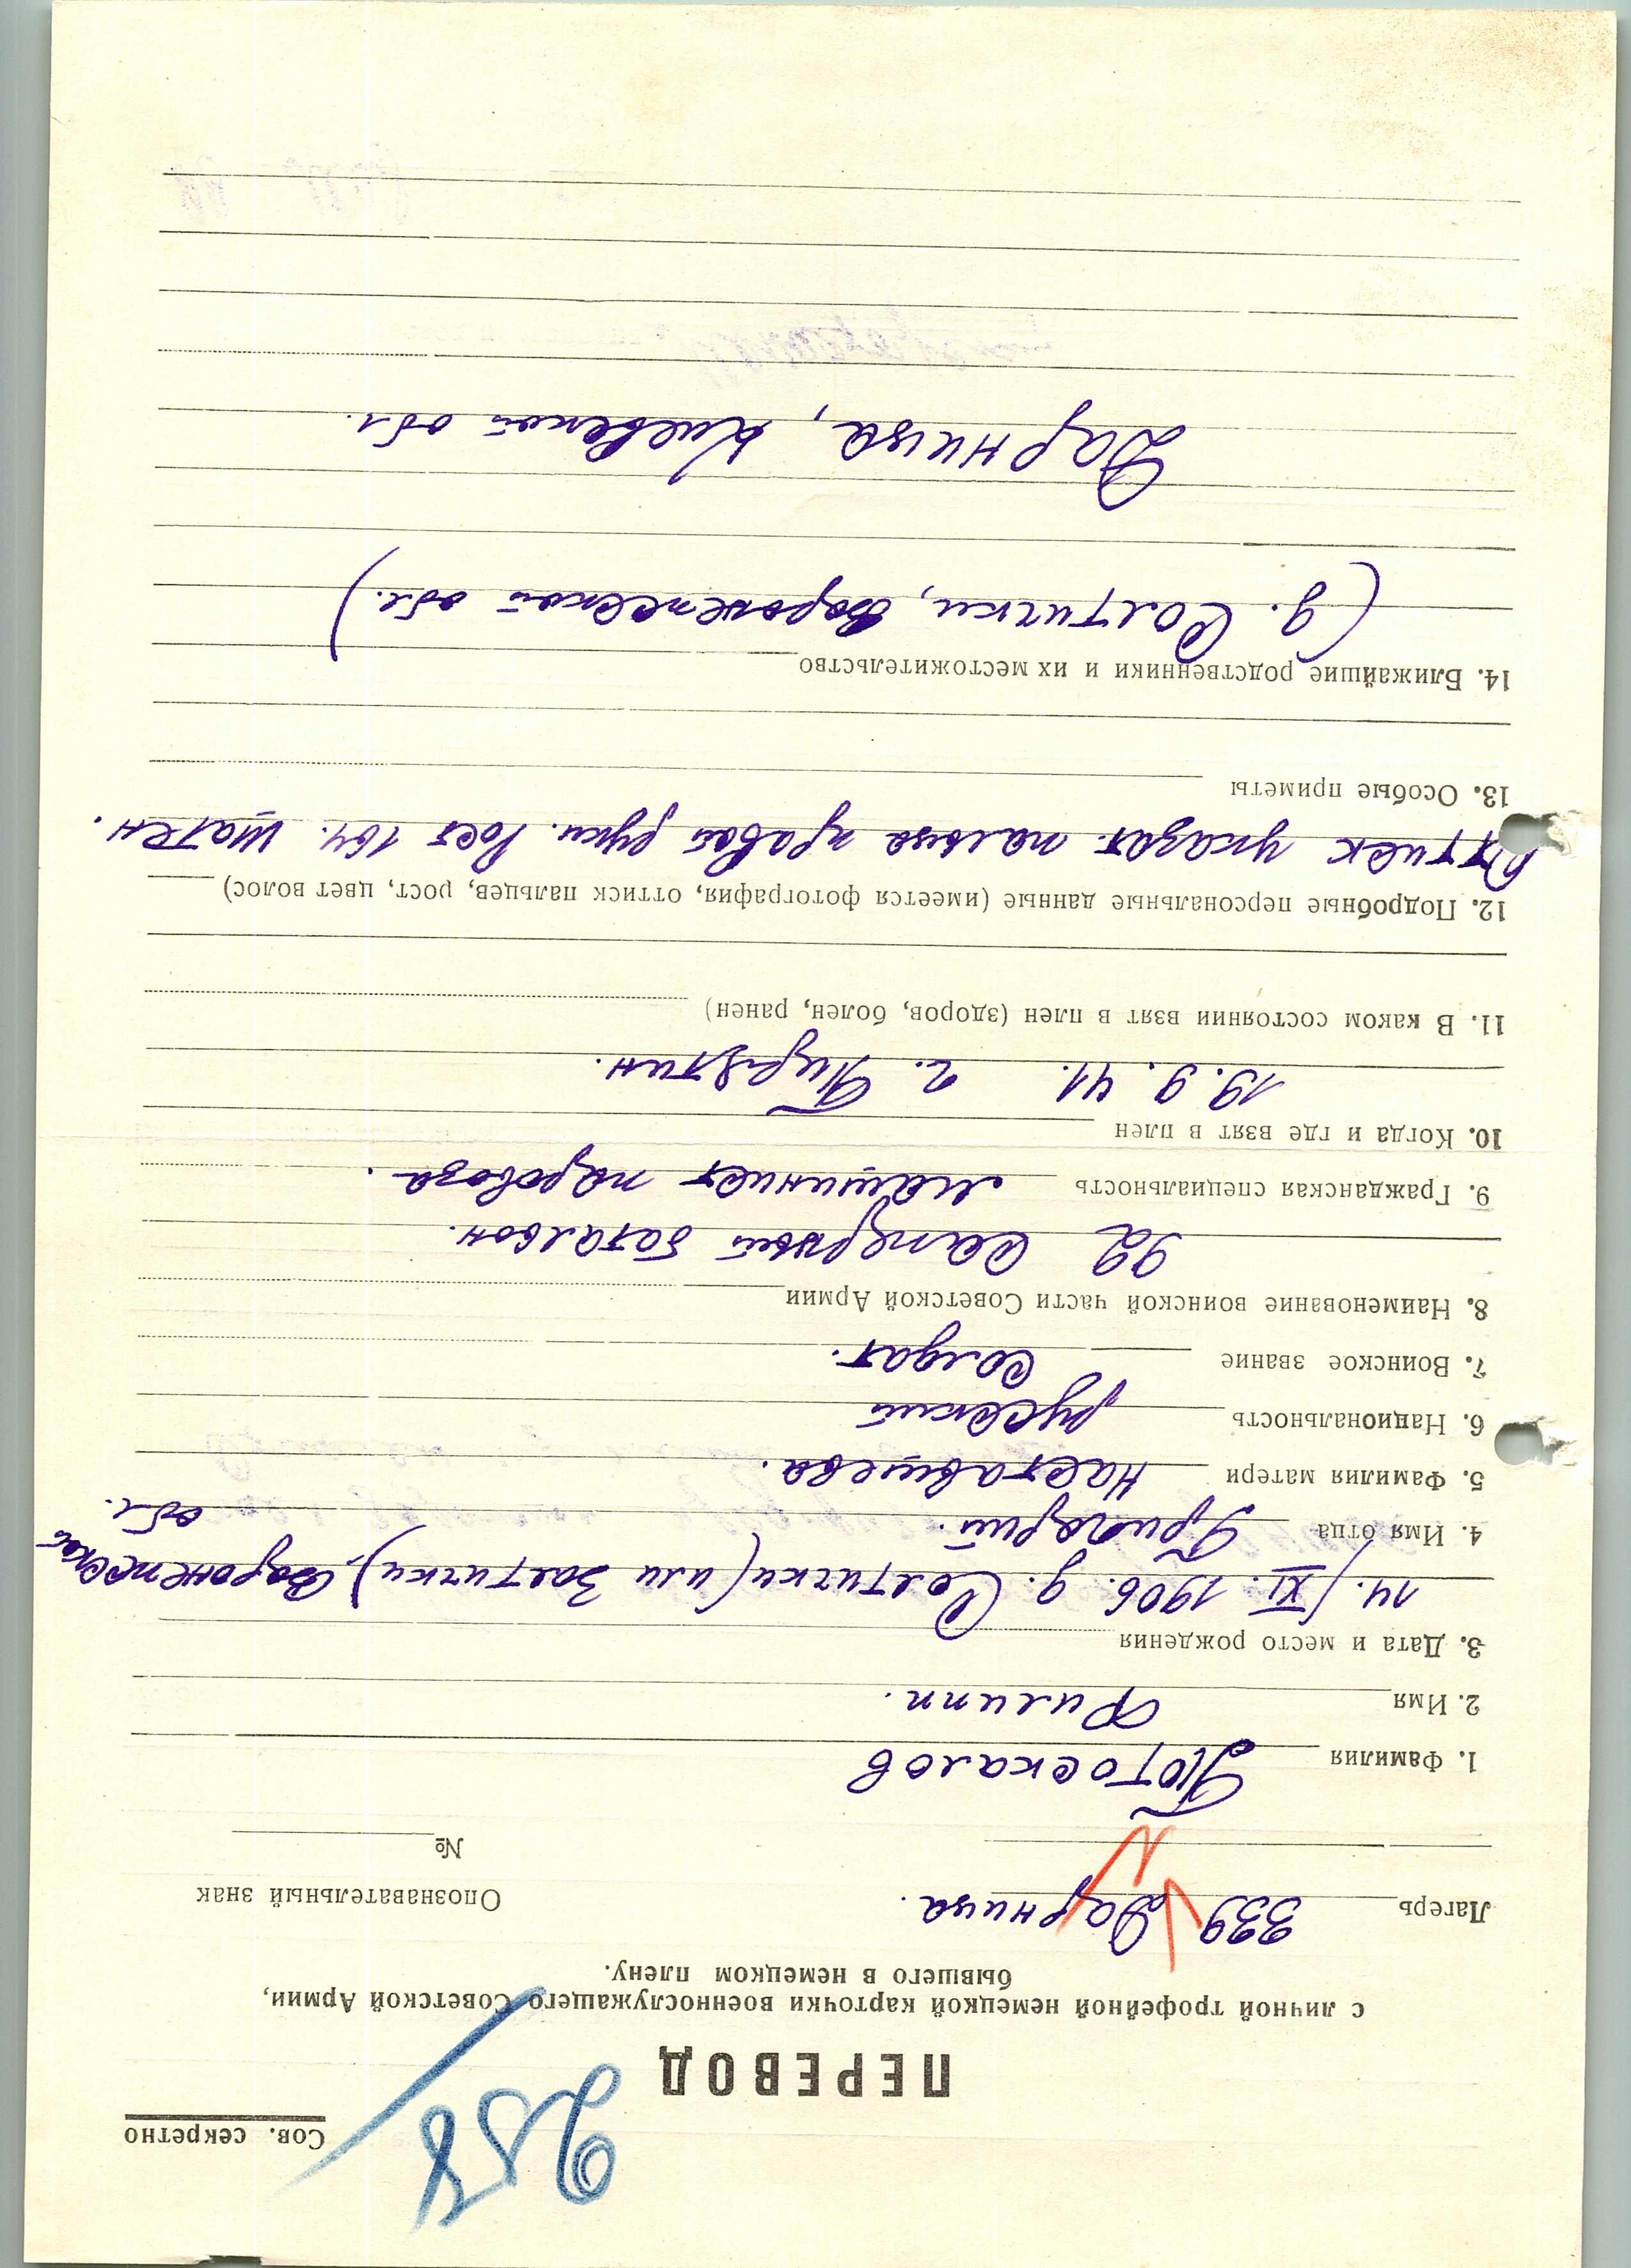 Сов. секретно
258
ПЕРЕВОД
с личной трофейной немецкой карточки военнослужащего Советской Армии,
бывшего в немецком плену.
Лагерь 339 Дарница. Опознавательный знак
№
1. Фамилия Потоскалов
2. Имя Филипп.
3. Дата и место рождения
14./XI. 1906. д. Состички (или Застички). Воронежской обл.
4. Имя отца Григорий.
5. Фамилия матери Наставшева.
6. Национальность русский
7. Воинское звание Солдат.
8. Наименование воинской части Советской Армии
92 саперный батальон.
9. Гражданская специальность Машинист паровоза.
10. Когда и где взят в плен
19. 9. 41. г. Пирятин.
11. В каком состоянии взят в плен (здоров, болен, ранен)
12. Подробные персональные данные (имеется фотография, оттиск пальцев, рост, цвет волос)
Оттиск указат. пальца правой руки. Рост 164. Шатен.
13. Особые приметы
14. Ближайшие родственники и их местожительство
(д. Состички, Воронежской обл.)
Дарница, Киевской обл.